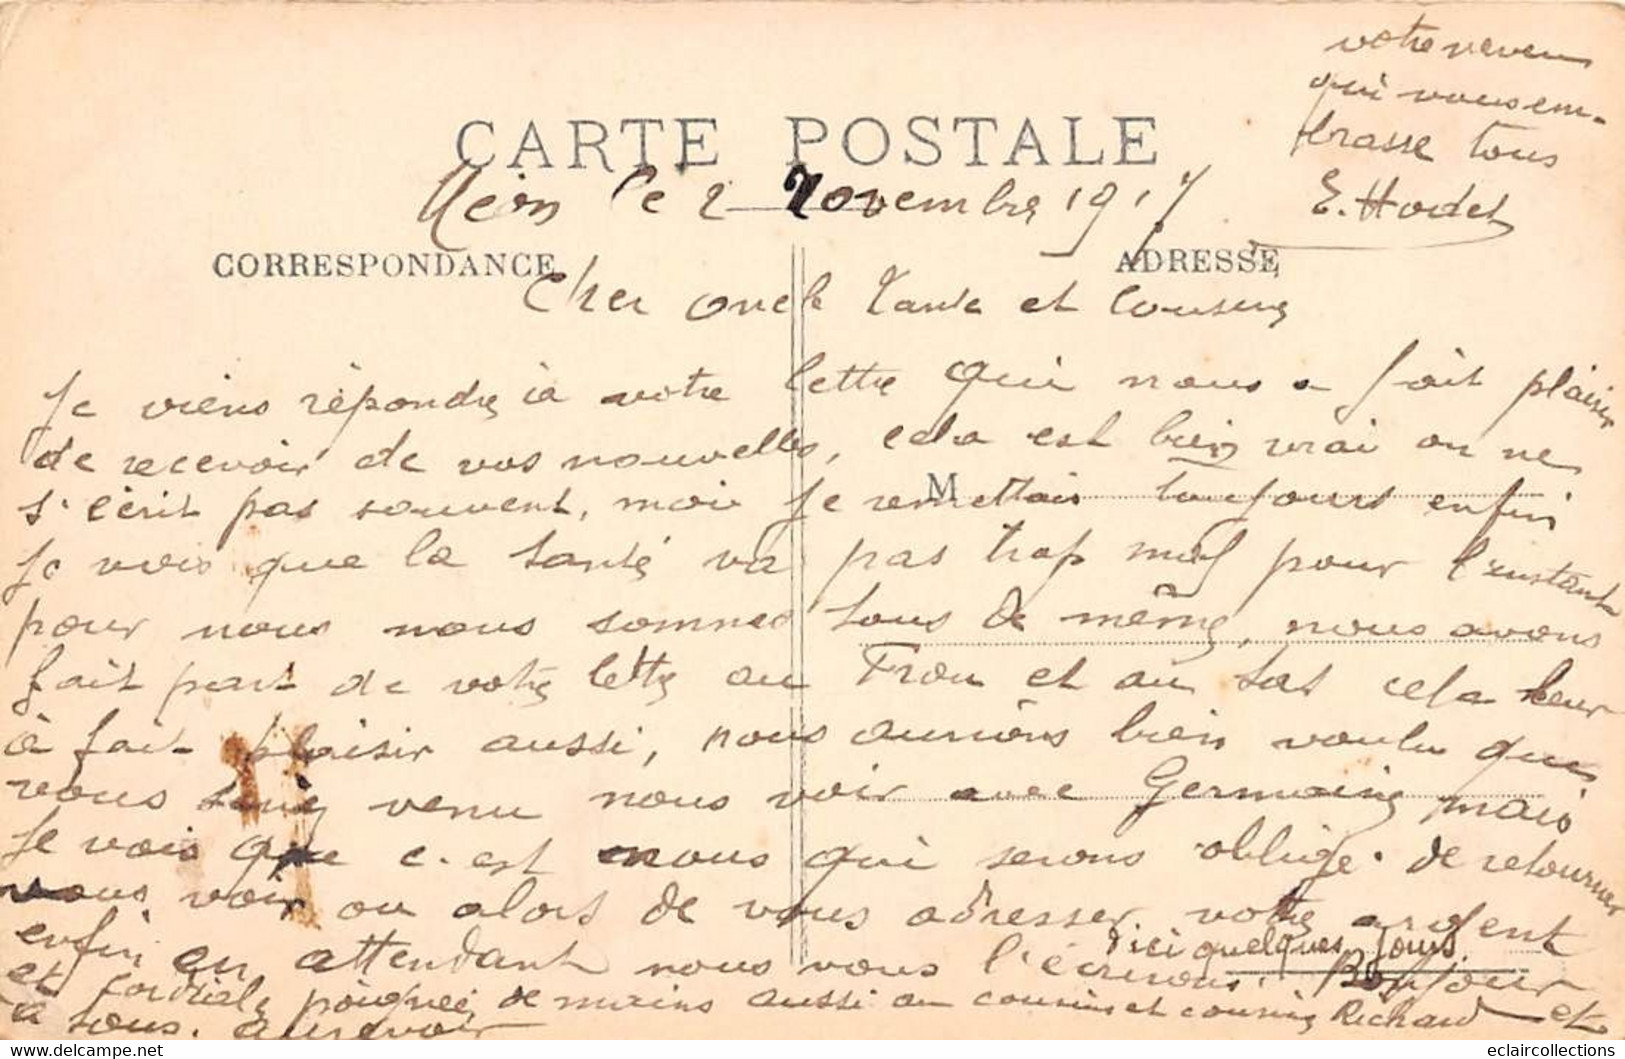 CARTE POSTALE
le 2 Novembre 1917
CORRESPONDANCE
ADRESSE
Cher oncle Tante et Cousine
Je viens répondre à votre lettre qui nous a fait plaisir
de recevoir de vos nouvelles, cela est bien vrai on ne
s'écrit pas souvent, moi je remettais toujours enfin
M
je vois que la santé va pas trop mal pour l'instant
pour nous nous sommes tous de même, nous avons
fait part de votre lettre au Frou et au cela leur
à fait plaisir aussi, nous aurions bien voulu que
vous venu nous voir avec Germaine mais
je vois que c'est nous qui serons obligé de retourner
vous voir ou alors de vous adresser votre argent
d'ici quelques jours.
enfin en attendant nous vous l'écrirons. Bonjour
et Cordiale poignée de mains aussi au cousin et cousine Richard et
à tous. aurevoir
votre neveu
qui vous em-
brasse tous
E. Hodet
eclaircollections